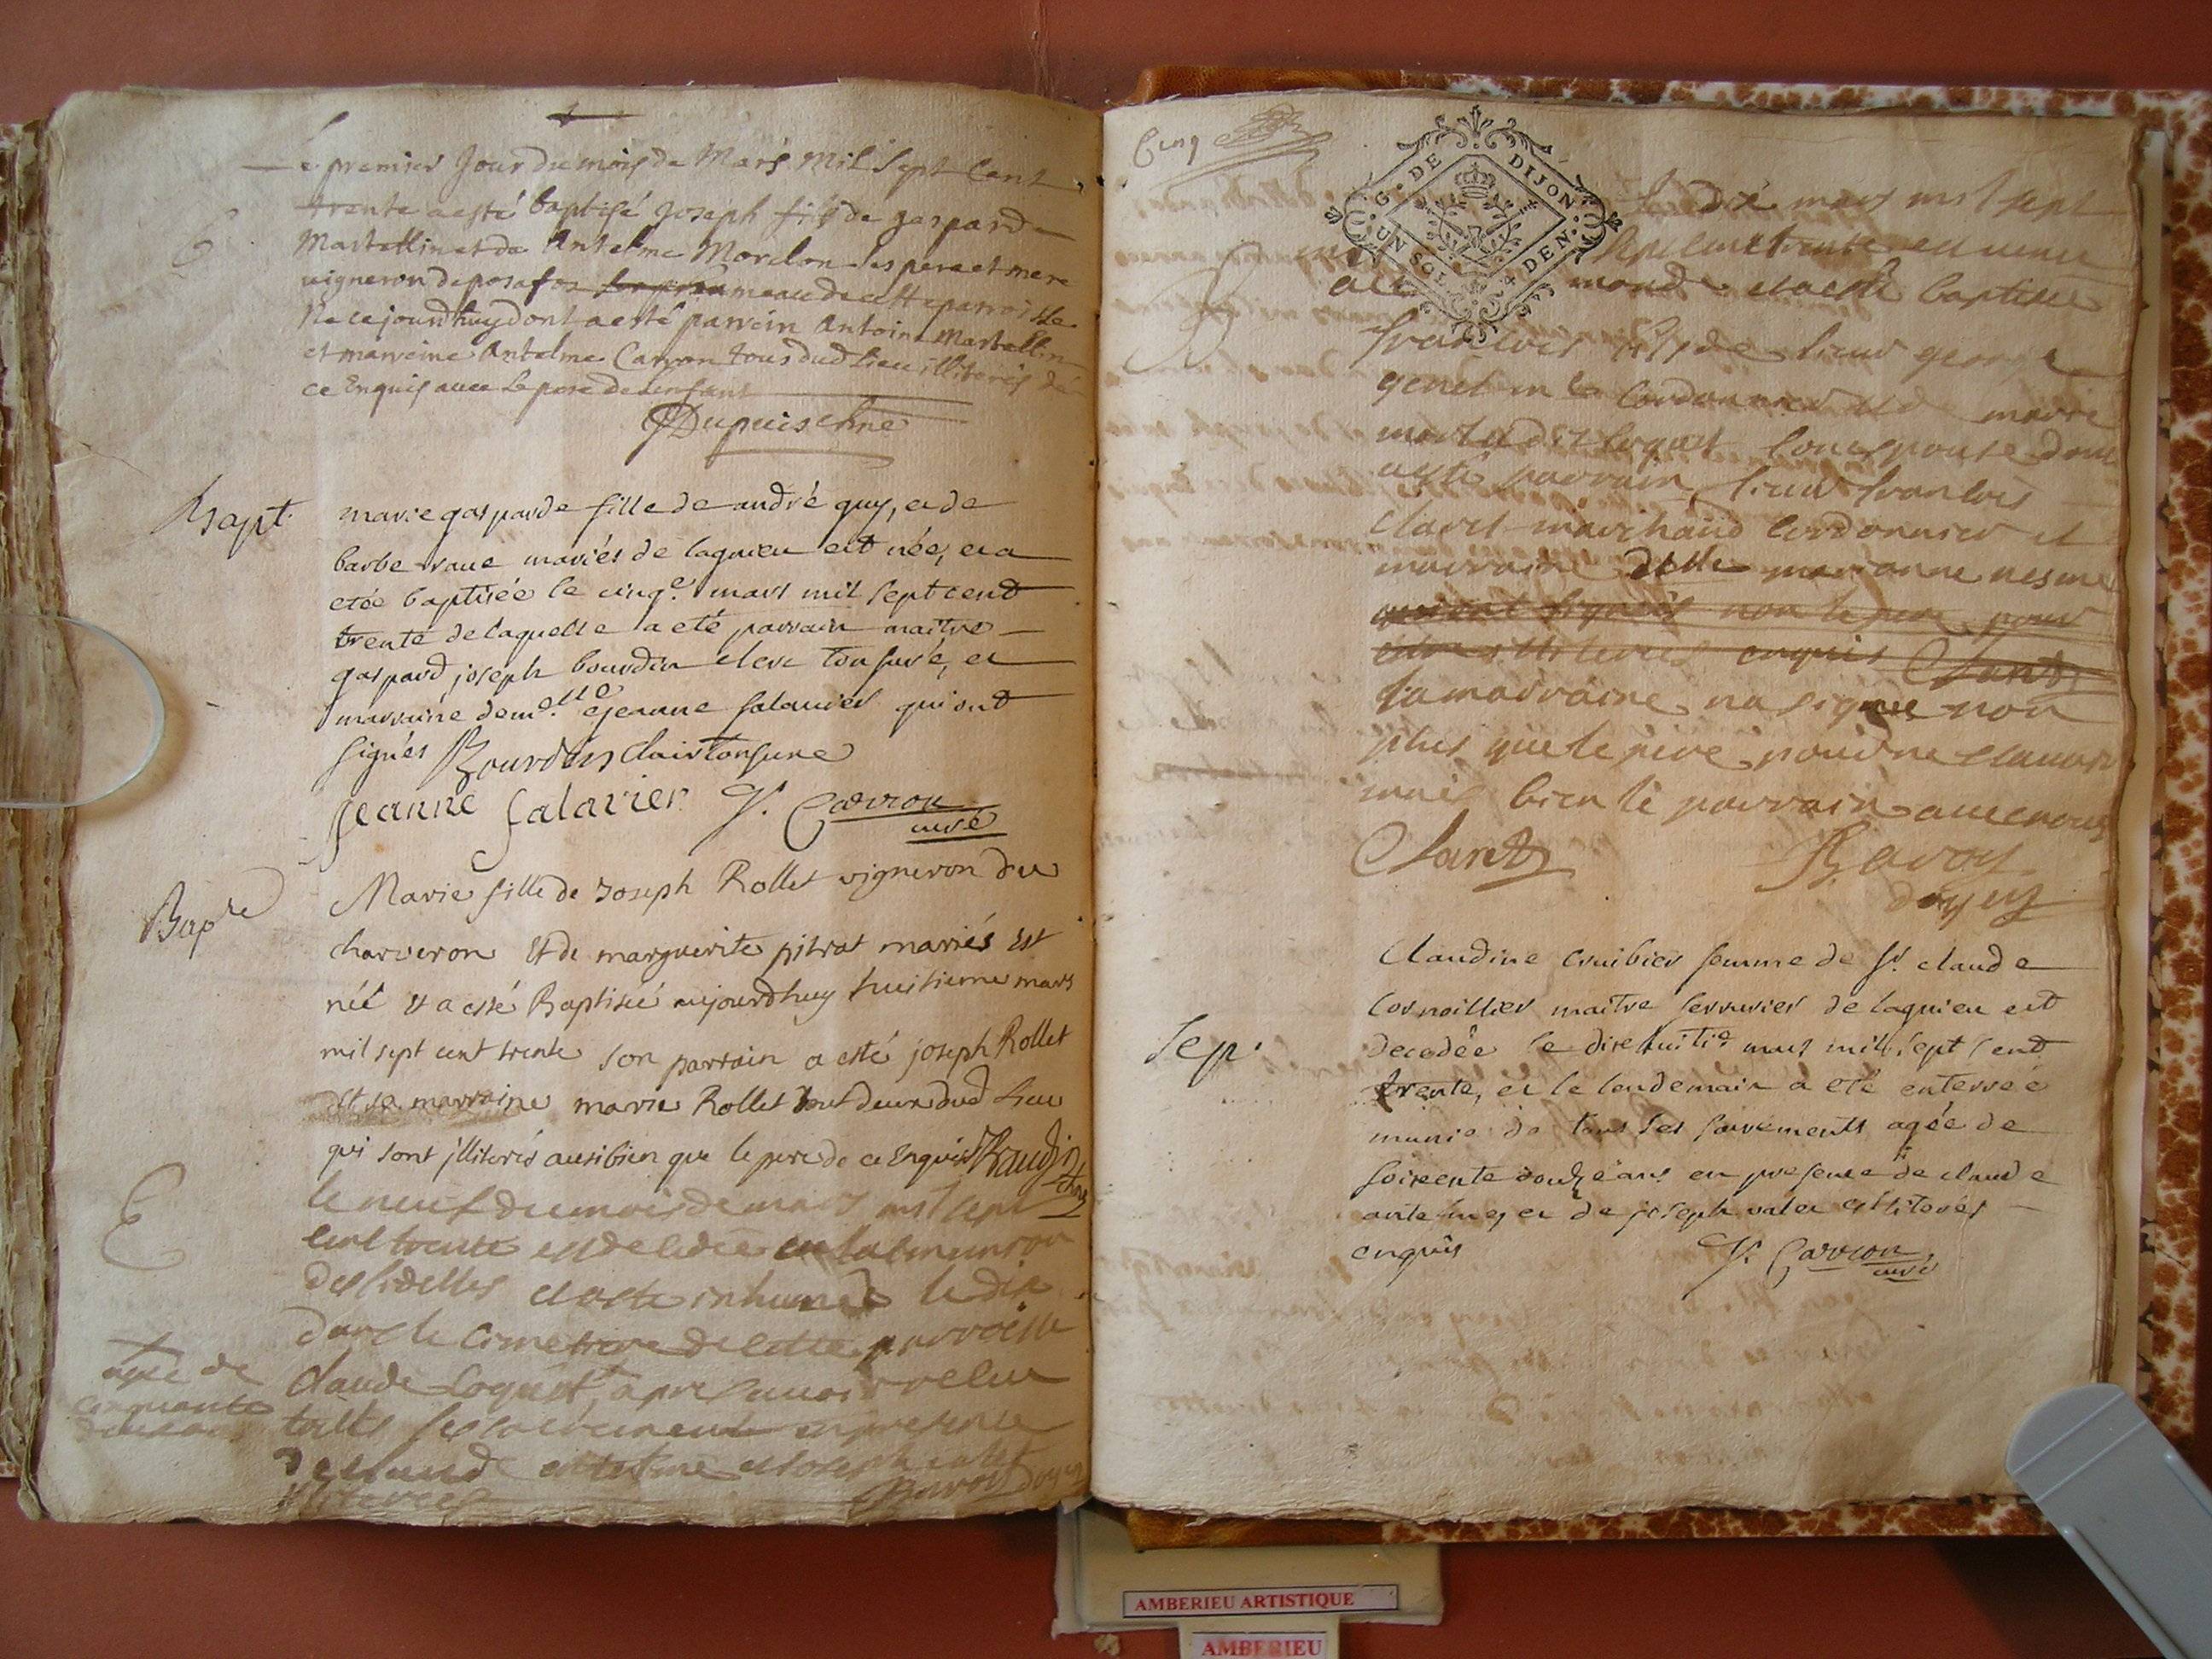 Le premier Jour du mois de Mars Mil Sept Cent
trente a esté baptisé Joseph fils de gaspard
Martellin et de Antelme Morclon ses pere et mere
vigneron de posafos hameau de cette parroisse
Ne ce jourdhuy dont a esté parrein Antoine Martellin
et marreine Antelme Carron tous dud lieu illiterés de
ce Enquis avec le pere de lenfant
Dupuis
Bapt.
marie gasparde fille de andré guy, et de
barbe rave mariés de lagnieu est née, et a
etée baptisée le cinq.e mars mil sept cent
trente de laquelle a eté parrain maitre
gaspard joseph bourdin clerc tonsuré, et
marraine dem.lle jeanne salavier qui ont
signés Bourdin Clair tonsure
jeanne salavier J. Carron
curé
Bap.re
Marie fille de Joseph Rollet vigneron du
charveron Et de marguerite pitrat mariés Est
née et a esté Baptisée aujourdhuy huitieme mars
mil sept cent trente son parrain a esté joseph Rollet
et sa marraine marie Rollet tout deux dud Lieu
qui sont jlliterés ausibien que le pere de ce Enquis
le neuf du mois de mars mil sept
cent trente est decedée en la communion
des fidelles et a esté inhumée le dix
dans le cimetiere de cette parroisse
agée de
cinquante
claude Loquet, apres avoir reçeu
touts ses sacrements en presence
de claude antelme et Joseph valet
illiterés Ravoy doyen
Cinq
G. DE DIJON
UN SOL 4 DEN.
Le dix mars mil sept
sept cent trente est venu
au monde et a esté baptisé
francois fils de sieur george
genet m.e cordonnier et de marie
marthe Loquet son epouse dont
a esté parrain sieur francois
claret marchand cordonnier et
marraine delle marianne nesme
qui ont signés non le pere pour
estre illiteré enquis Claret
La marraine na signée non
plus que le pere pour ne scavoir
mais bien le parrain avec nous
Claret Ravoy
doyen
Sep.
Claudine cruibier femme de sr. claude
cornoillier maitre serrurier de lagnieu est
decedée le dixhuiti.e mars mil sept cent
trente, et le lendemain a eté enterrée
munie de tous ses sacrements agée de
soixente douze ans en presence de claude
antelme, et de joseph valet illiterés
enquis J. Carron
curé
AMBERIEU ARTISTIQUE
AMBERIEU